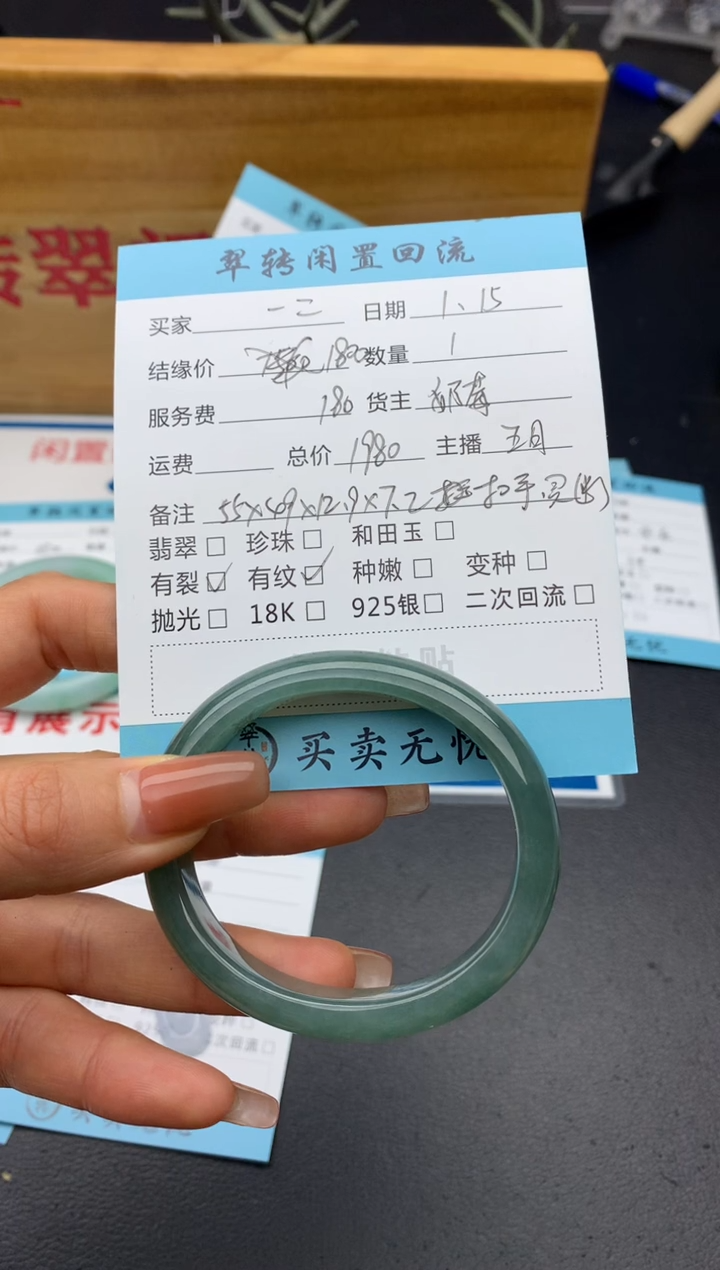 翠转闲置回流
买家 一二 日期 1、15
结缘价 1800 数量 1
服务费 180 货主
运费 总价 1980 主播 五月
备注 55×49×12.9×7.2
翡翠□ 珍珠□ 和田玉□
有裂☑ 有纹☑ 种嫩□ 变种□
抛光□ 18K□ 925银□ 二次回流□
贴
买卖无忧
翠
闲置
展示